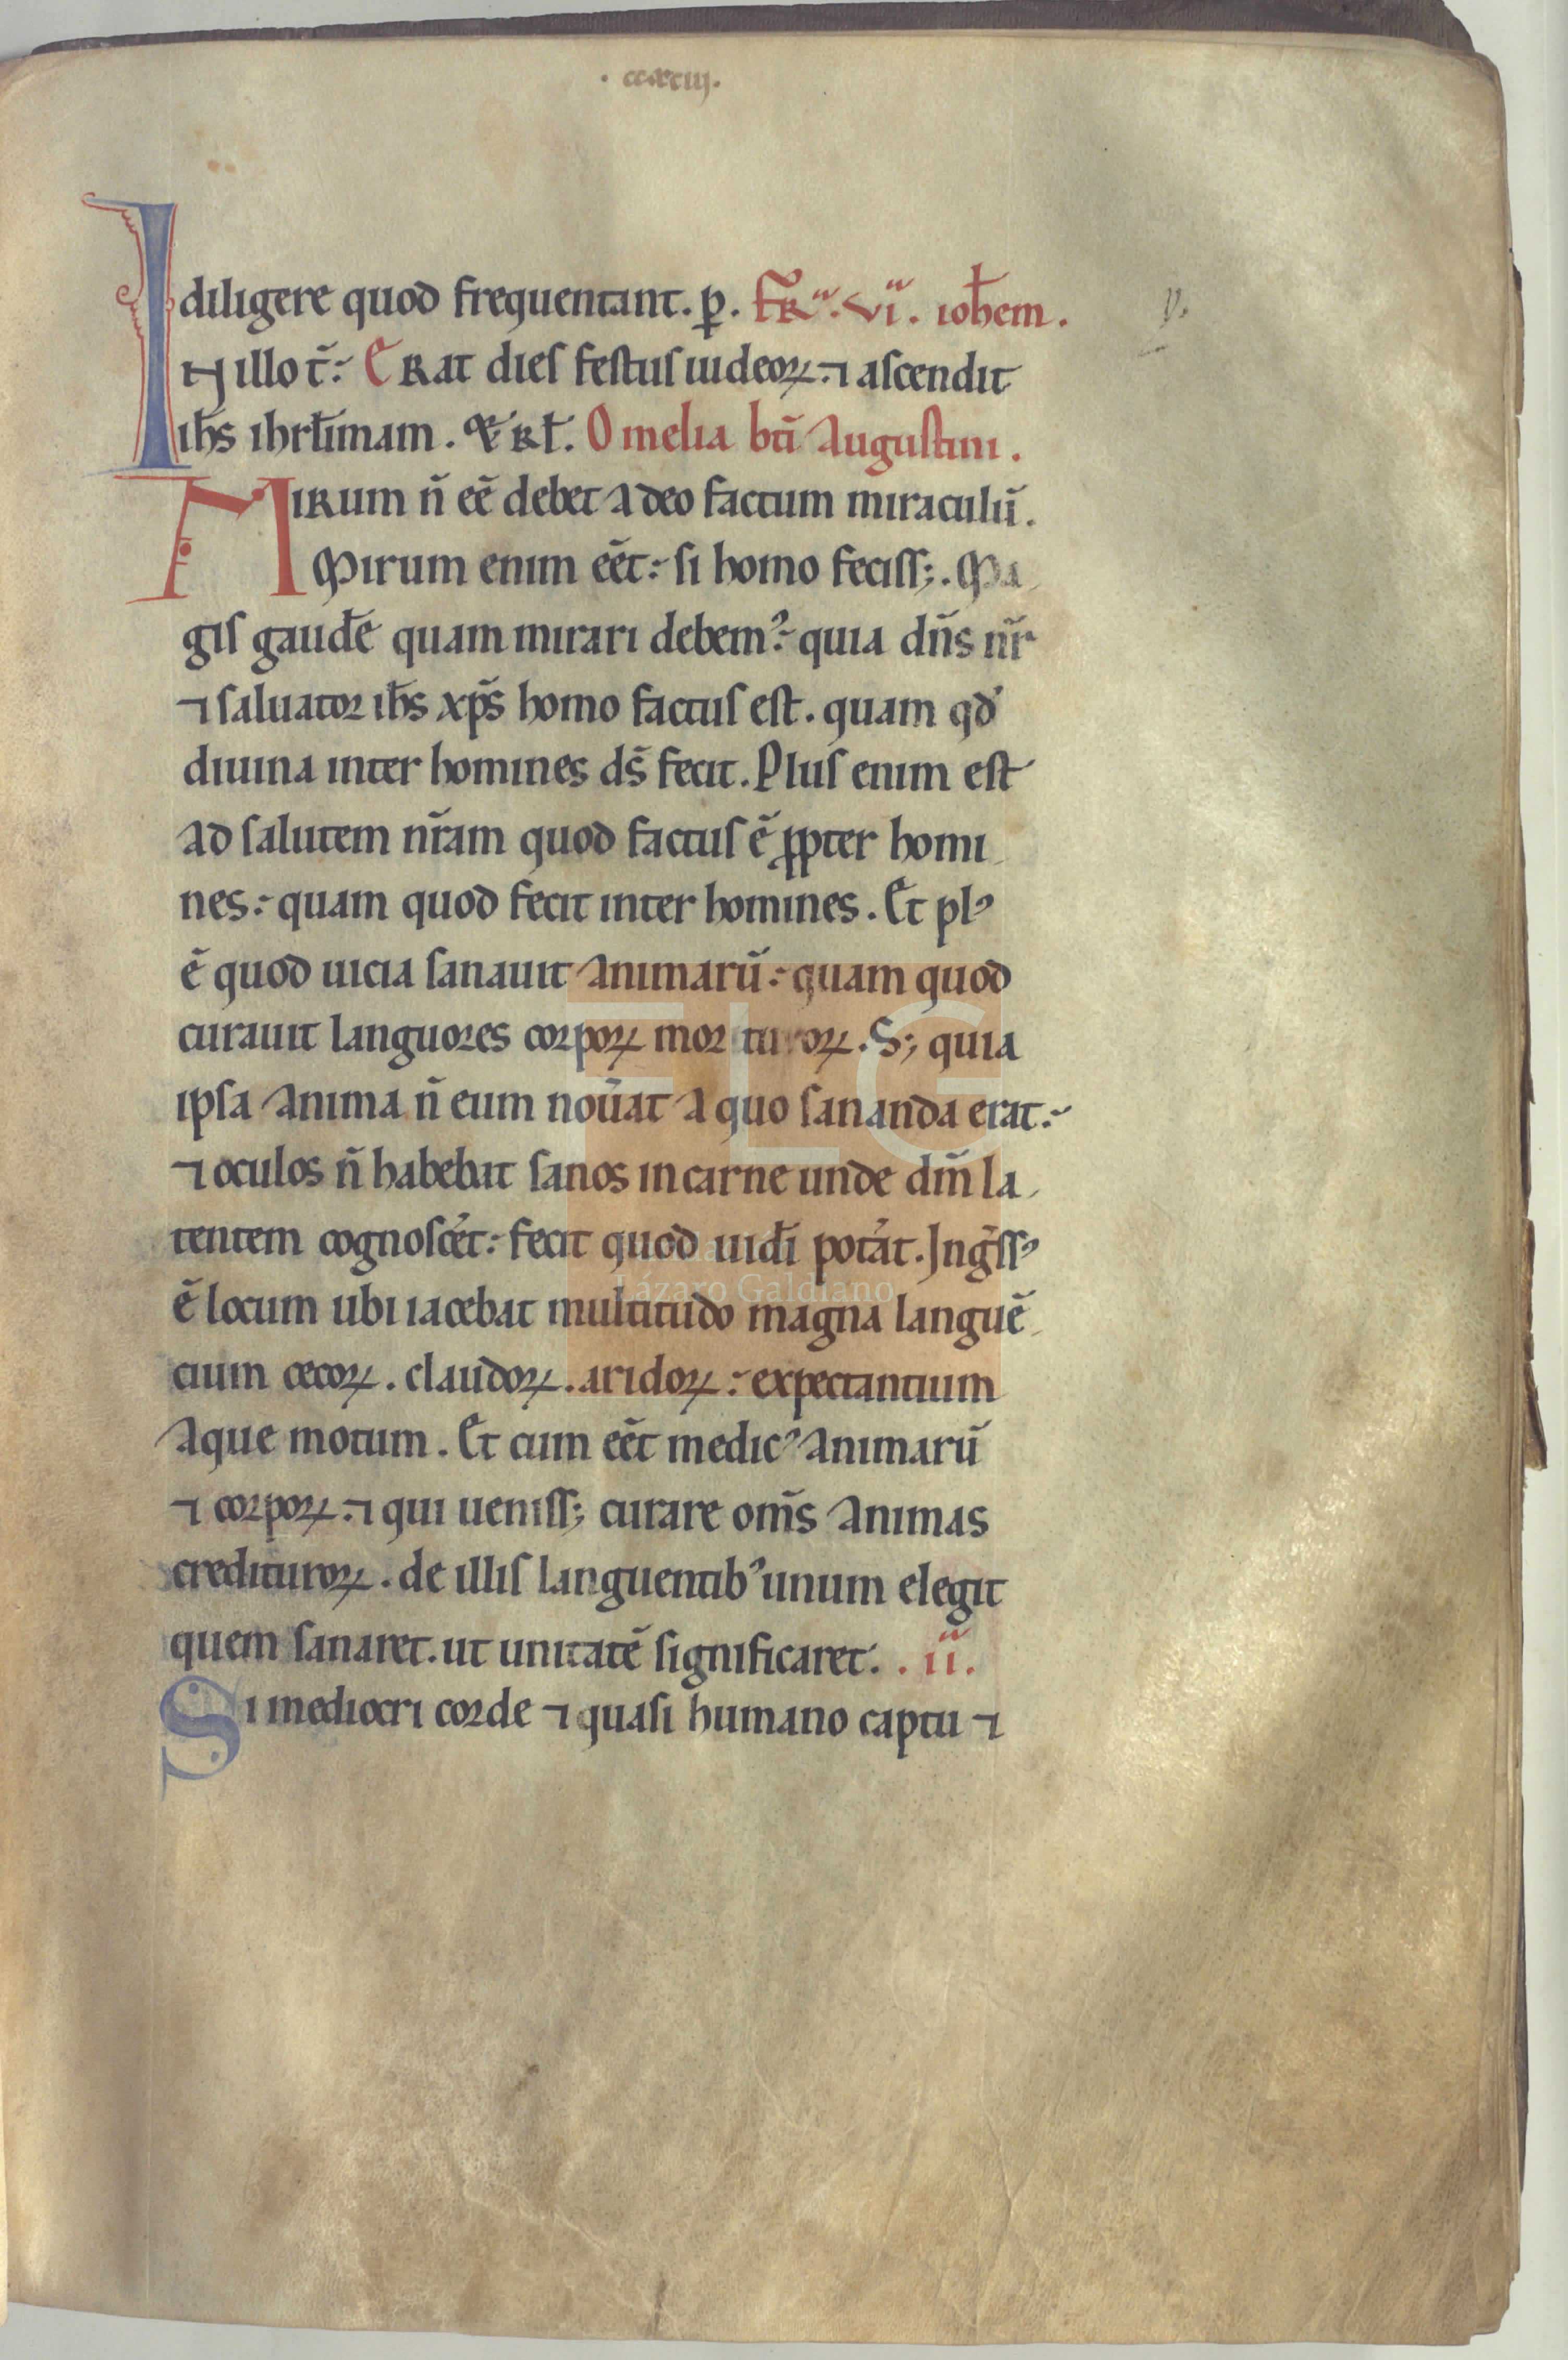 · ccxciij.
diligere quod frequentant. ꝑ. Fr̃ᵃ. vıᵃ. ioh̄em.
v.
IN illo t̄: ERat dies festus iudeoꝝ: ⁊ ascendit
ih̄s ihrl̄imam. & rl̄. Omelia bt̄i Augustini.
MIRum n̄ eē debet a deo factum miraculū.
Mirum enim eēt: si homo feciss;. Ma
gis gaud̄e quam mirari debemꝰ: quia dn̄s nr̄
⁊ saluator ih̄s xp̄s homo factus est. quam qd̓
diuina inter homines ds̄ fecit. Plus enim est
ad salutem nr̄am quod factus ē ꝓpter homi
nes: quam quod fecit inter homines. Et plꝰ
ē quod uicia sanauit animarū: quam quod
curauit languores corpoꝝ morituroꝝ. S; quia
ipsa anima n̄ eum nou̓at a quo sananda erat:
⁊ oculos n̄ habebat sanos in carne unde dn̄m la
tentem cognosc̓et: fecit quod uid̄i pot̓at. Ing̓ssꝰ
ē locum ubi iacebat multitudo magna languē
cium cecoꝝ. claudoꝝ. aridoꝝ: expectantium
aque motum. Et cum eēt medicꝰ animarū
⁊ corpoꝝ: ⁊ qui ueniss; curare om̄s animas
credituroꝝ. de illis languentibꝰ unum elegit
quem sanaret. ut unitatē significaret. . ii.
Si mediocri corde ⁊ quasi humano captu ⁊
FLG
Lázaro Galdiano